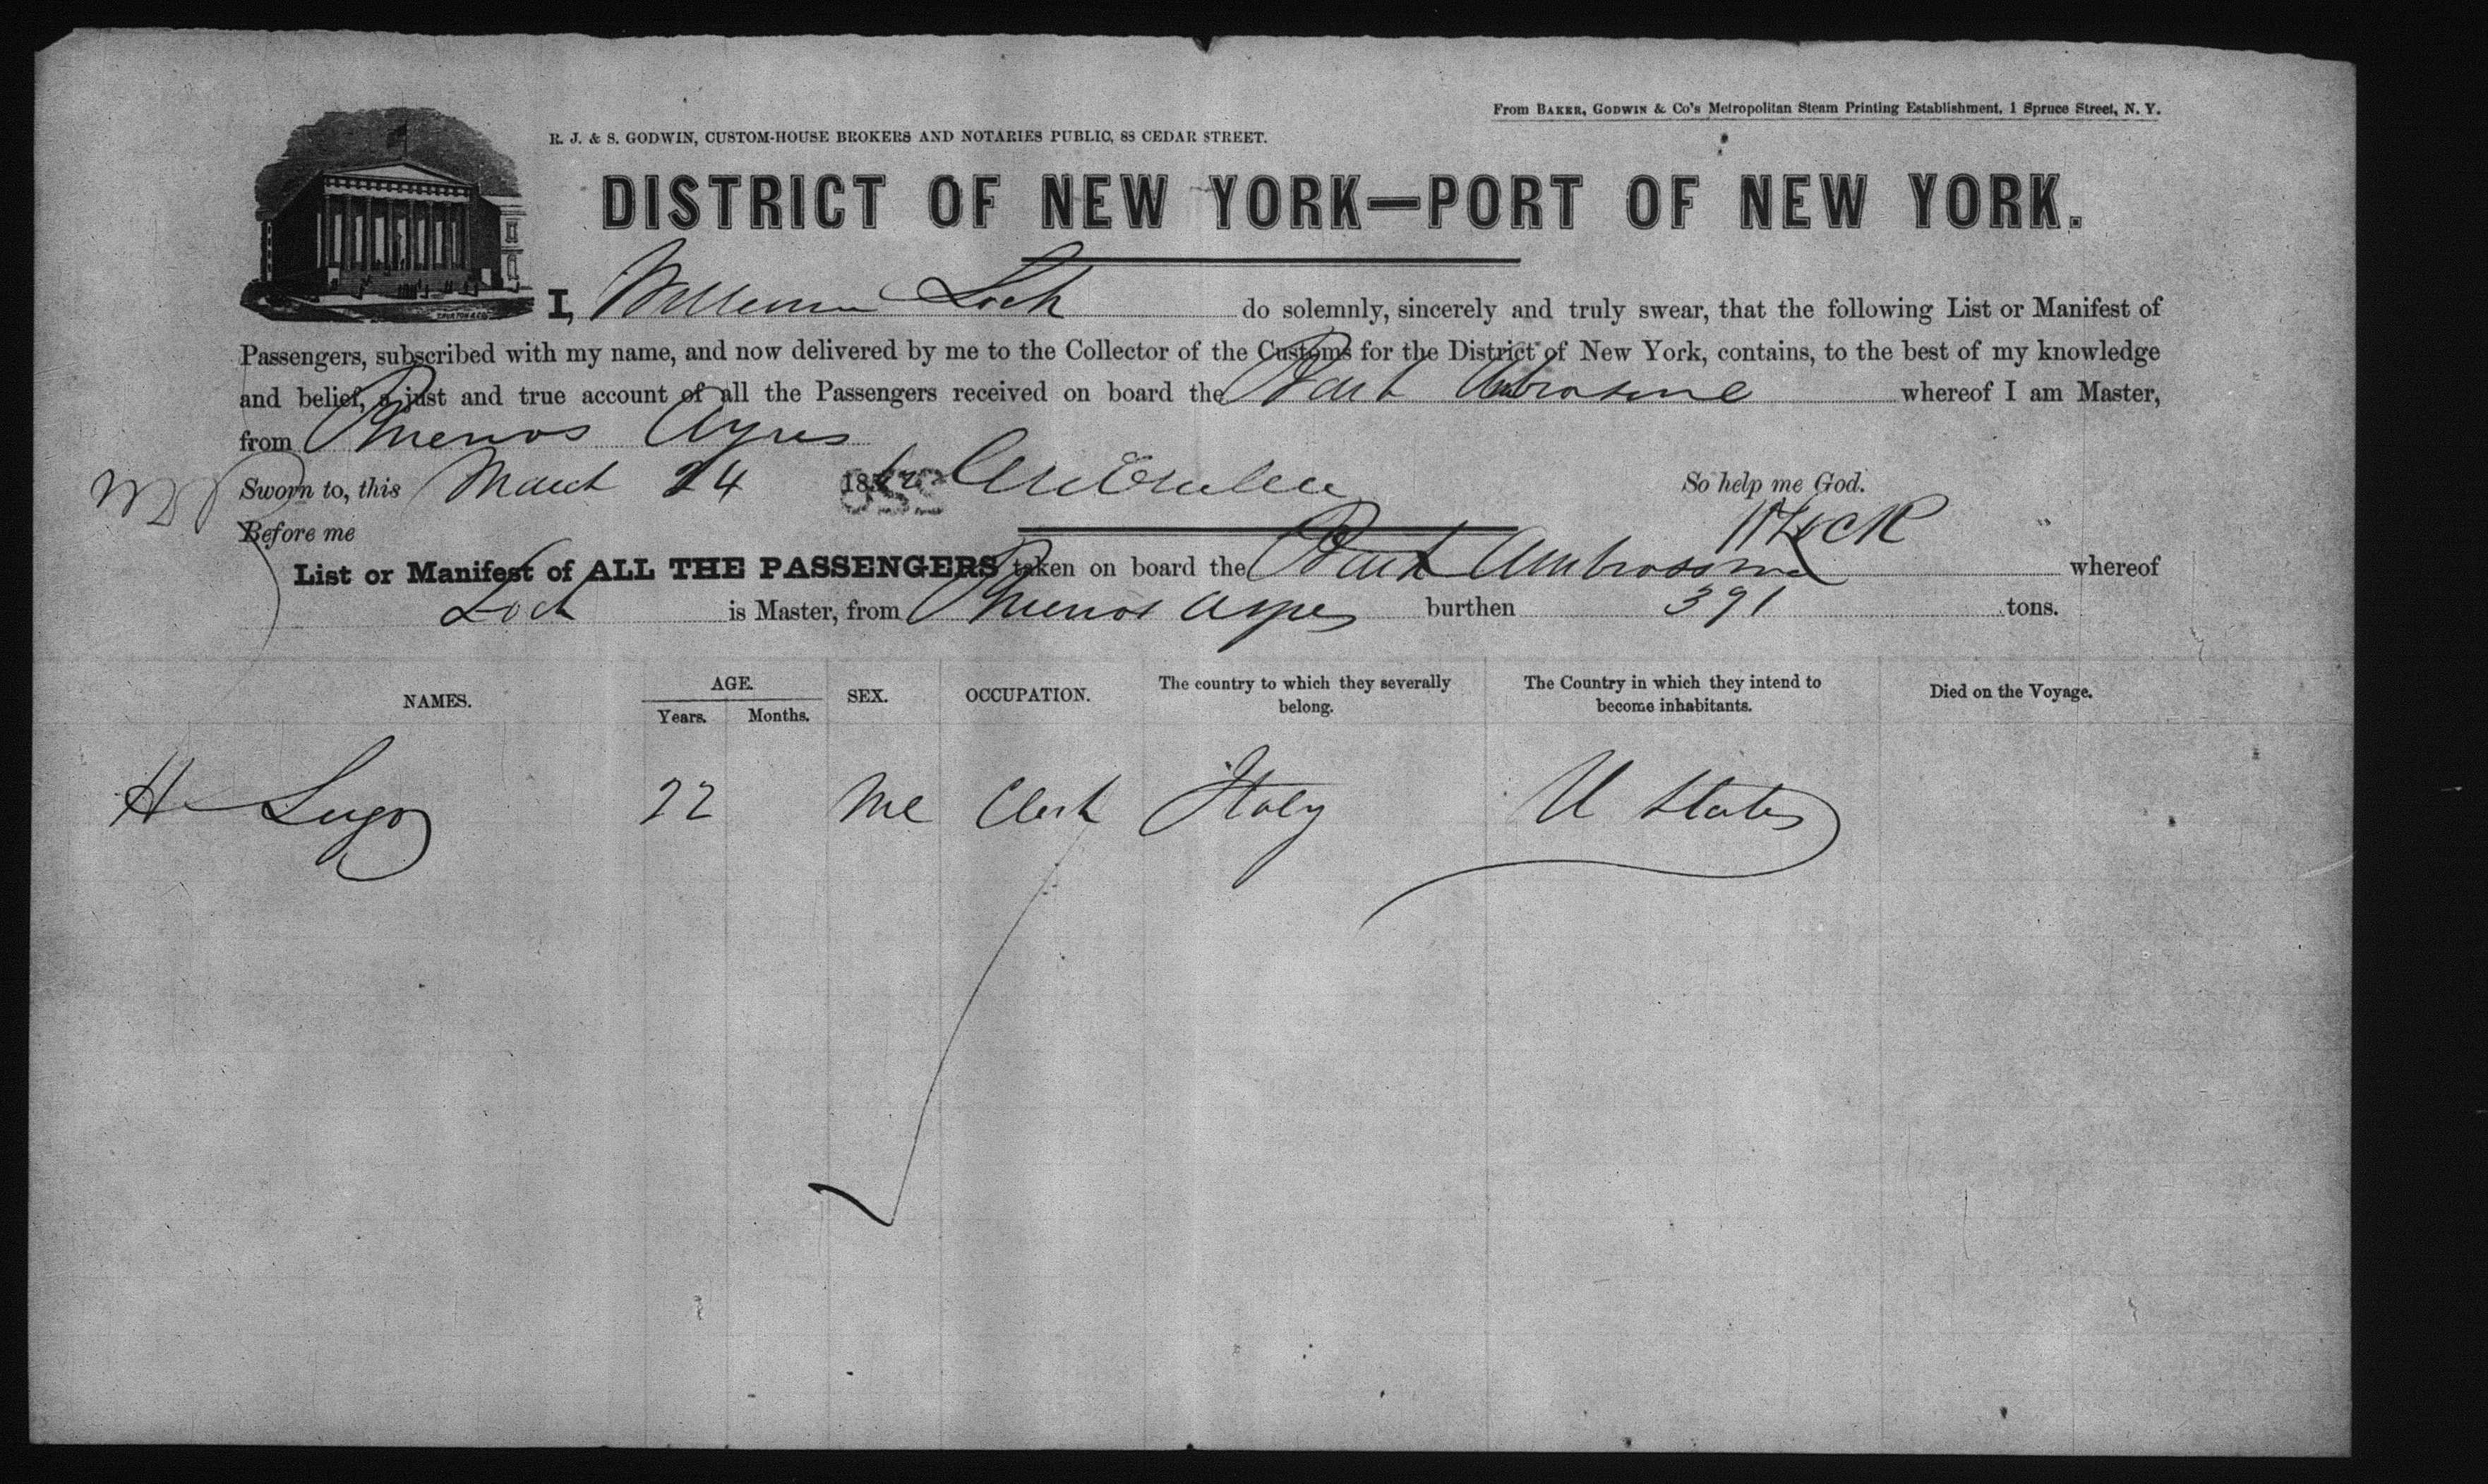 From BAKER, GODWIN & Co's Metropolitan Steam Printing Establishment, 1 Spruce Street, N. Y.
R. J. & S. GODWIN, CUSTOM-HOUSE BROKERS AND NOTARIES PUBLIC, 88 CEDAR STREET.
DISTRICT OF NEW YORK—PORT OF NEW YORK.
I, William Lock do solemnly, sincerely and truly swear, that the following List or Manifest of
Passengers, subscribed with my name, and now delivered by me to the Collector of the Customs for the District of New York, contains, to the best of my knowledge
and belief, a just and true account of all the Passengers received on board the Bark Ambrosine whereof I am Master,
from Buenos Ayres
Sworn to, this March 24 18 So help me God.
Before me W Lock
List or Manifest of ALL THE PASSENGERS taken on board the Bark Ambrosine whereof
Lock is Master, from Buenos Ayres burthen 391 tons.
NAMES. AGE. SEX. OCCUPATION. The country to which they severally belong. The Country in which they intend to become inhabitants. Died on the Voyage.
Years. Months.
H Lugo 22 Me Clerk Italy U States